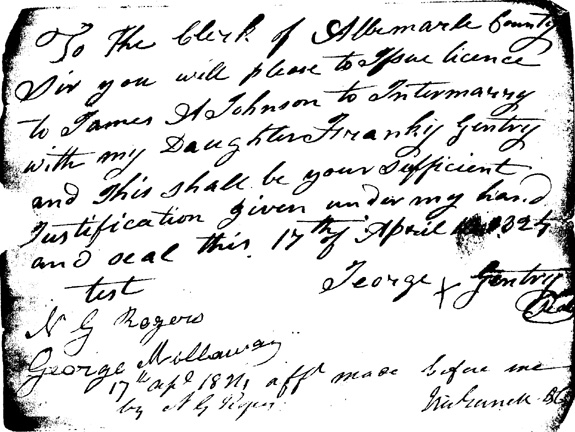 To the Clerk of Albemarle County
Sir you will please to Issue licence
to James A Johnson to Intermarry
with my Daughter Franky Gentry
and this shall be your Sufficient
Justification given under my hand
and seal this 17th of April 1824
George X Gentry
Seal
test
N G Rogers
George Mallaway
17th apl 1824 afft made before me
by N G Rogers